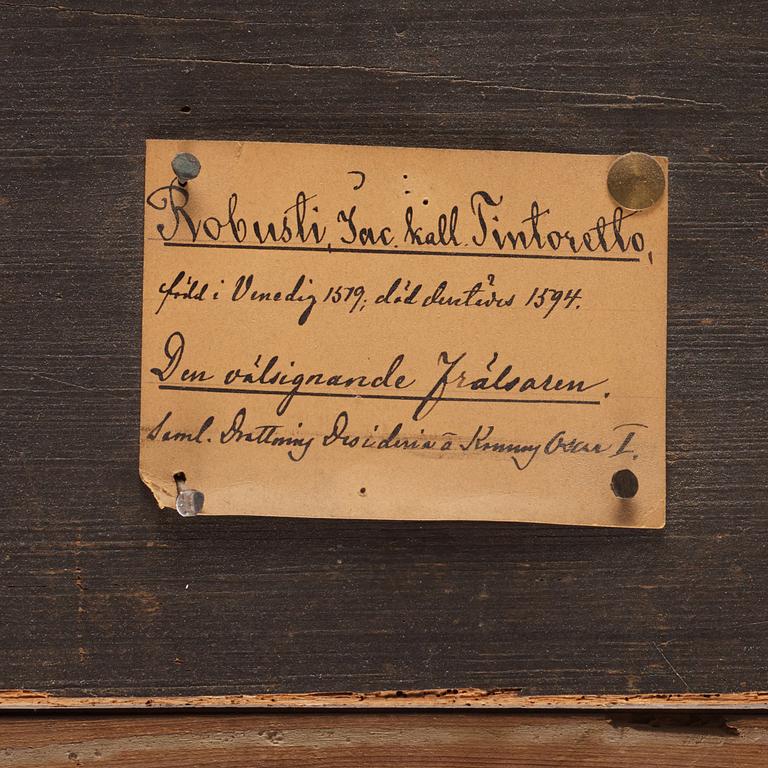 Robusti, Jac. kall. Tintoretto,
född i Venedig 1519; död derstädes 1594.
Den välsignande Frälsaren.
Saml. Drottning Desideria o Konung Oscar I.